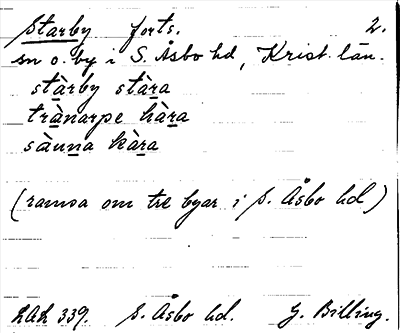 Starby forts. 2.
sn o. by i S. Åsbo hd, Krist. län.
stàrby stàra
trànarpe hàra
sàuna kàra
(ramsa om tre byar i S. Åsbo hd)
LAL 339. S. Åsbo hd. G. Billing.